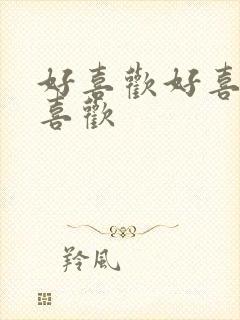 好喜歡好喜
喜歡
羚風